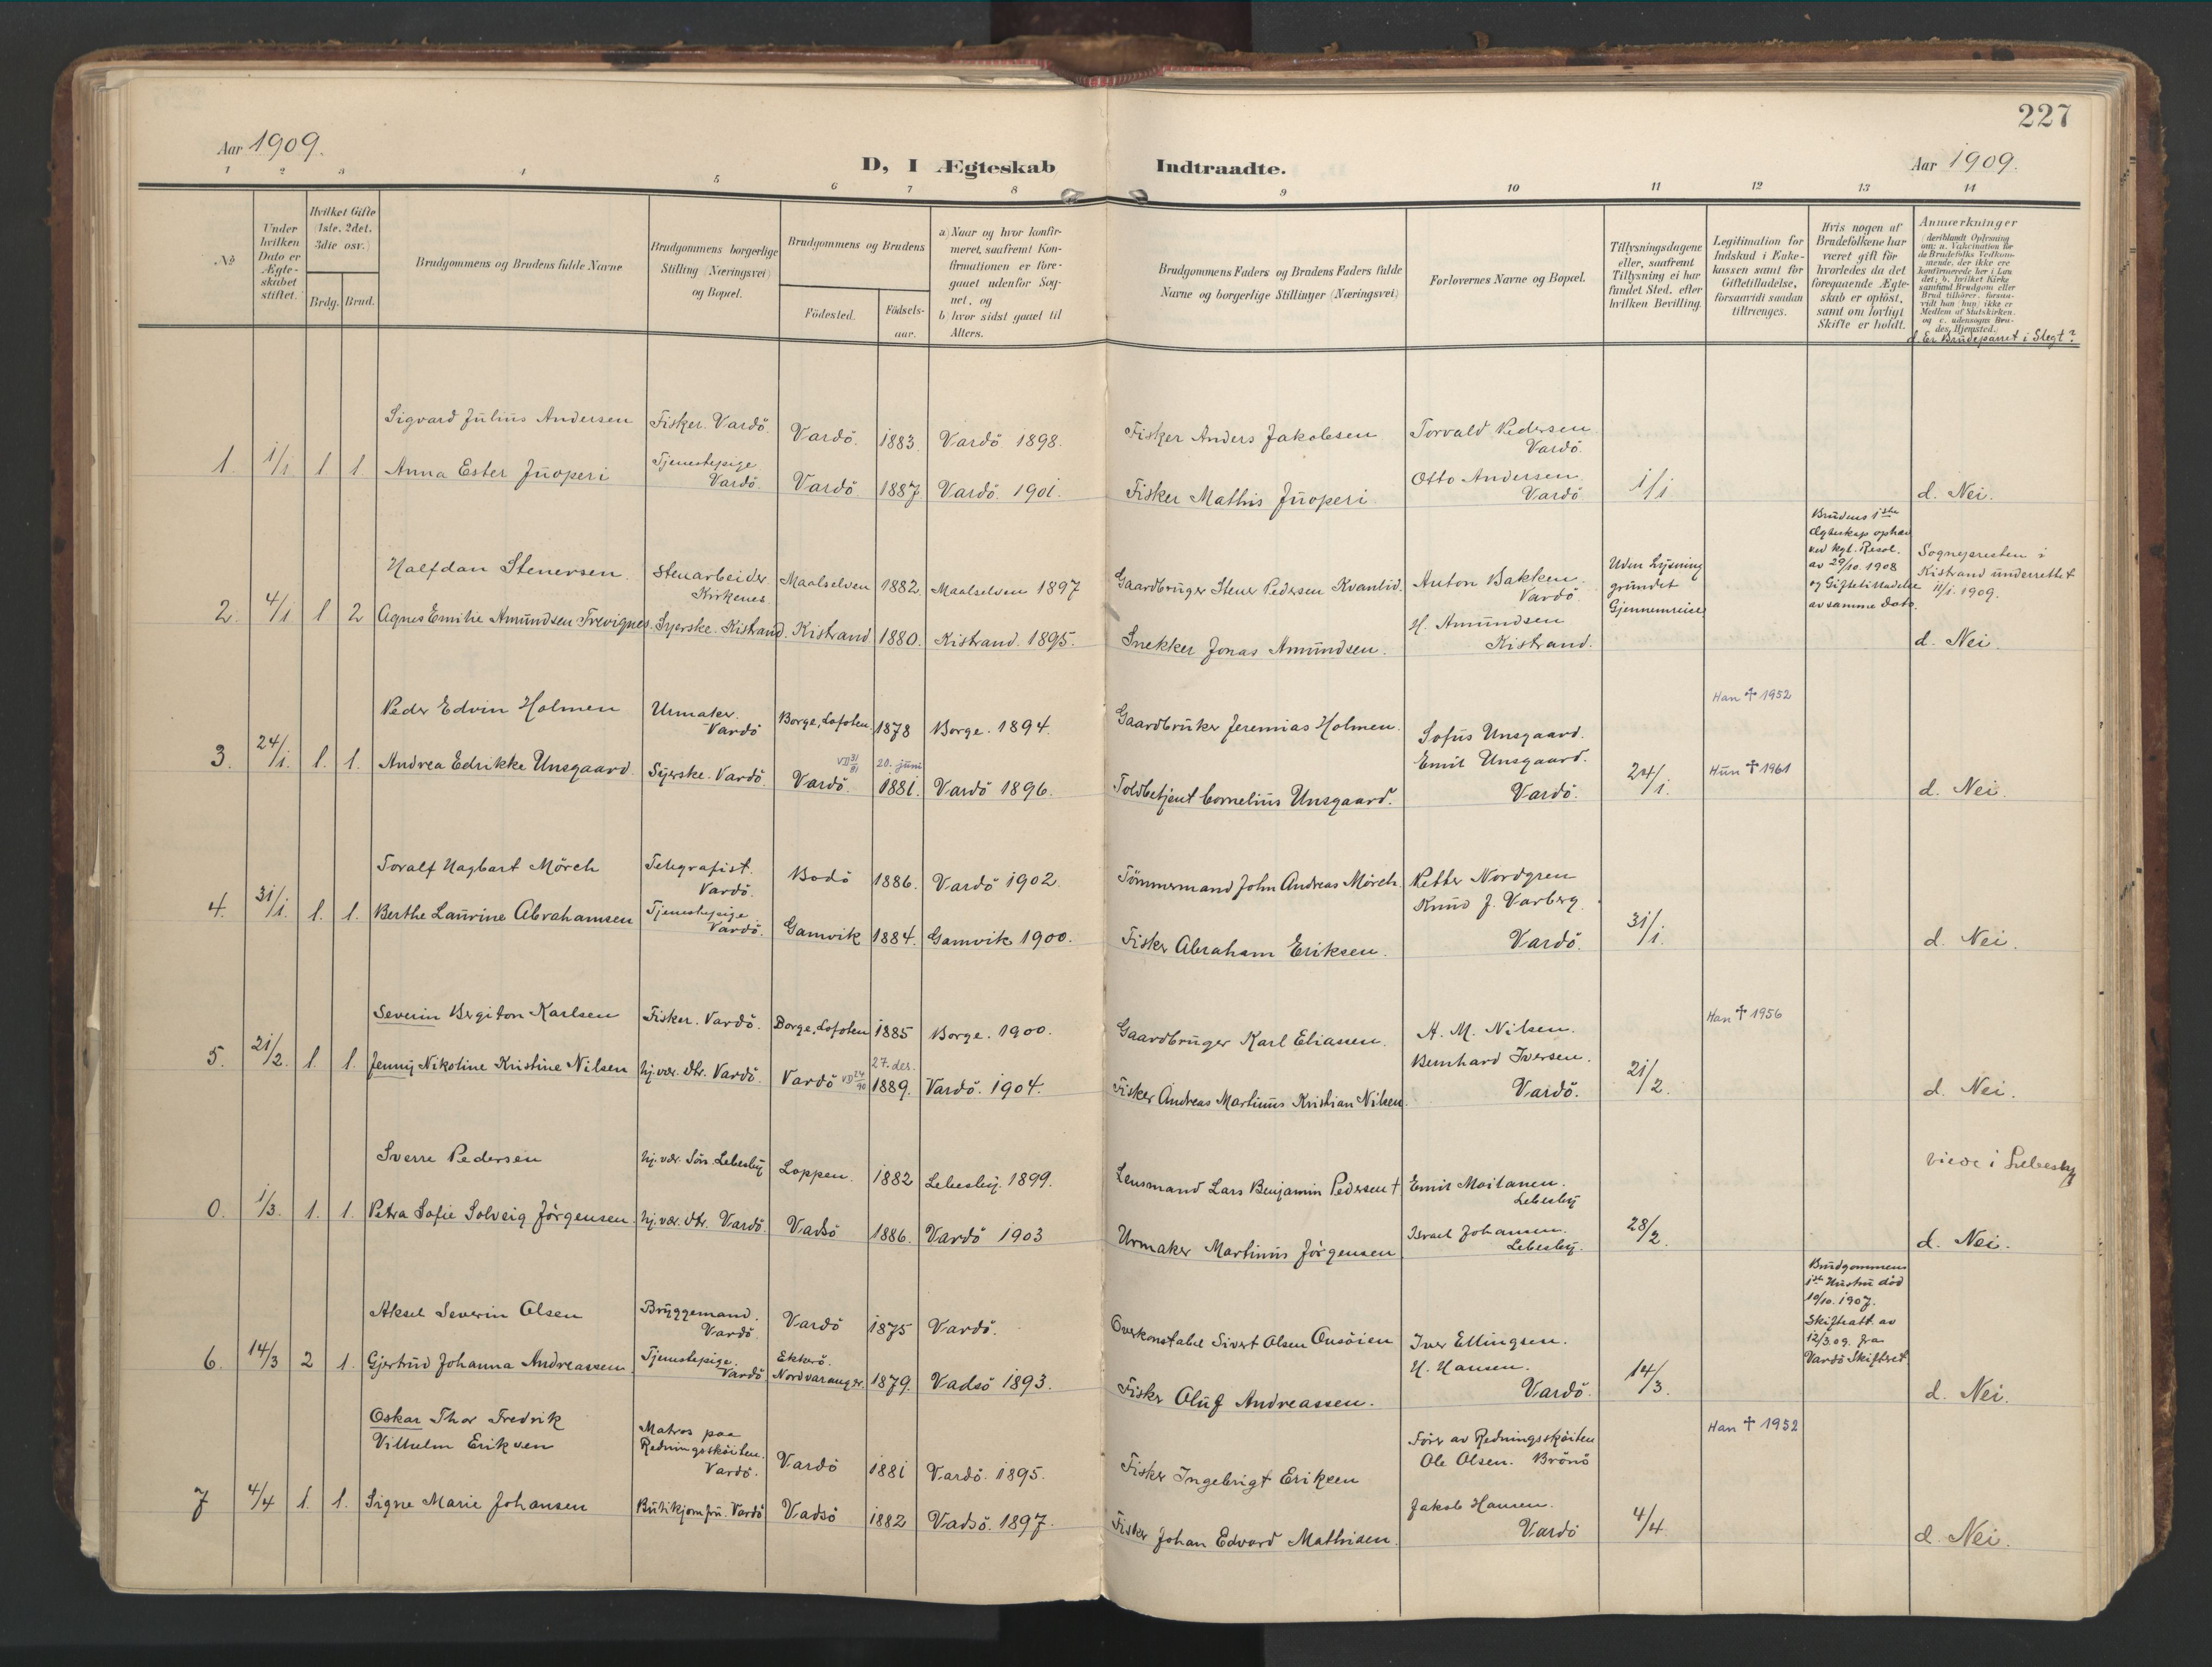 227
Aar 1909.
D, I Ægteskab
Indtraadte.
Aar 1909.
1 2 3 4 5 6 7 8 9 10 11 12 13 14
No
Under
hvilken
Dato er
Ægte-
skabet
stiftet.
Hvilket Gifte
(1ste, 2det,
3die osv.)
Brdg. Brud.
Brudgommens og Brudens fulde Navne
Brudgommens borgerlige
Stilling (Næringsvei)
og Bopæl.
Brudgommens og Brudens
Fødested.
Fødsels-
aar.
a) Naar og hvor konfir-
meret, saafremt Kon-
firmationen er fore-
gaaet udenfor Sog-
net, og
b) hvor sidst gaaet til
Alters.
Brudgommens Faders og Brudens Faders fulde
Navne og borgerlige Stillinger (Næringsvei)
Forlovernes Navne og Bopæl.
Tillysningsdagene
eller, saafremt
Tillysning ei har
fundet Sted, efter
hvilken Bevilling.
Legitimation for
Indskud i Enke-
kassen samt for
Giftetilladelse,
forsaavidt saadan
tiltrænges.
Hvis nogen af
Brudefolkene har
været gift før
hvorledes da det
foregaaende Ægte-
skab er opløst,
samt om lovligt
Skifte er holdt.
Anmærkninger
(deriblandt Oplysning
om: a. Vakcination for
de Brudefolks Vedkom-
mende, der ikke ere
konfirmerede her i Lan-
det; b. hvilket Kirke-
samfund Brudgom eller
Brud tilhører, forsaa-
vidt han (hun) ikke er
Medlem af Statskirken,
og c. udensogns Bru-
des Hjemsted.)
d. Er Brudeparret i Slegt?
Sigvard Julius Andersen Fisker. Vardö. Vardö. 1883. Vardö 1898. Fisker Anders Jakobsen Torvald Pedersen
Vardö.
1. 1/1 1 1. Anna Ester Juoperi Tjenestepige
Vardö. Vardö 1887. Vardö. 1901. Fisker Mathis Juoperi. Otto Andersen.
Vardö 1/1 d. Nei.
Halfdan Stenersen. Stenarbeider.
Kirkenes. Maalselven 1882. Maalselven 1897 Gaardbruger Stener Pedersen Kvanlid. Anton Bakken.
Vardö.
Uden Lysning
grundet
Gjennemreise
Brudens 1ste
Ægteskap ophæv
ved kgl. Resol.
av 29/10. 1908
og Giftetilladelse
av samme Dato.
Sognepresten i
Kistrand underrettet
11/1. 1909.
2. 4/1 1 2 Agnes Emilie Amundsen Trevignes. Syerske. Kistrand. Kistrand 1880. Kistrand. 1895. Snekker Jonas Amundsen. H. Amundsen
Kistrand. d. Nei.
Peder Edvin Holmen Urmaker.
Vardö Borge, Lofoten. 1878 Borge. 1894. Gaardbruker Jeremias Holmen. Sofus Unsgaard. Han ✝ 1952
3. 24/1. 1. 1. Andrea Edrikke Unsgaard. Syerske. Vardö. VII 31/81
Vardö. 20. juni
1881. Vardö 1896. Toldbetjent Cornelius Unsgaard. Emil Unsgaard.
Vardö. 24/1. Hun ✝ 1961 d. Nei.
Toralf Hagbart Mörch Telegrafist.
Vardö. Bodö 1886. Vardö 1902. Tömmermand John Andreas Mörch. Petter Nordgren
4. 31/1. 1. 1. Berthe Laurine Abrahamsen Tjenestepige.
Vardö. Gamvik 1884. Gamvik 1900. Fisker Abraham Eriksen. Knud J. Varberg.
Vardö. 31/1. d. Nei.
Severin Bergiton Karlsen Fisker. Vardö. Borge, Lofoten 1885 Borge. 1900. Gaardbruger Karl Eliassen. A. M. Nilsen. Han ✝ 1956
5. 21/2. 1. 1. Jenny Nikoline Kristine Nilsen hj. vær. dtr. Vardö. Vardö VD 24/90 27. des.
1889. Vardö. 1904. Fisker Andreas Martinus Kristian Nilsen. Bernhard Iversen.
Vardö. 21/2. d. Nei.
Sverre Pedersen hj. vær. Sön. Lebesby Loppen. 1882 Lebesby. 1899. Lensmand Lars Benjamin Pedersen † Emil Moilanen.
Lebesby viede i Lebesby
0. 1/3. 1. 1. Petra Sofie Solveig Jörgensen. hj. vær. dtr. Vardö Vadsö 1886. Vardö 1903 Urmaker Martinus Jörgensen Israel Johansen.
Lebesby. 28/2. d. Nei.
Aksel Severin Olsen Bryggemand.
Vardö. Vardö 1875 Vardö. Overkonstabel Sivert Olsen Onsöien Iver Ellingsen.
Brudgommens
1ste Hustru död
10/10. 1907.
Skifteatt. av
12/3. 09. fra
Vardö Skifteret
6. 14/3 2 1. Gjertrud Johanna Andreassen. Tjenestepige.
Vardö Ekkerö.
Nordvaranger. 1879. Vadsö 1893. Fisker Oluf Andreassen. H. Hansen.
Vardö. 14/3. d. Nei.
Oskar Thor Fredrik
Vilhelm Eriksen Matros paa
Redningssköiten.
Vardö. Vardö 1881 Vardö. 1895. Fisker Ingebrigt Eriksen Förer av Redningssköiten
Ole Olsen. Brönö Han ✝ 1952
7 4/4 1. 1. Signe Marie Johansen Butikjomfru. Vardö Vadsö 1882 Vadsö. 1897. Fisker Johan Edvard Mathisen. Jakob Hansen.
Vardö 4/4 d. Nei.